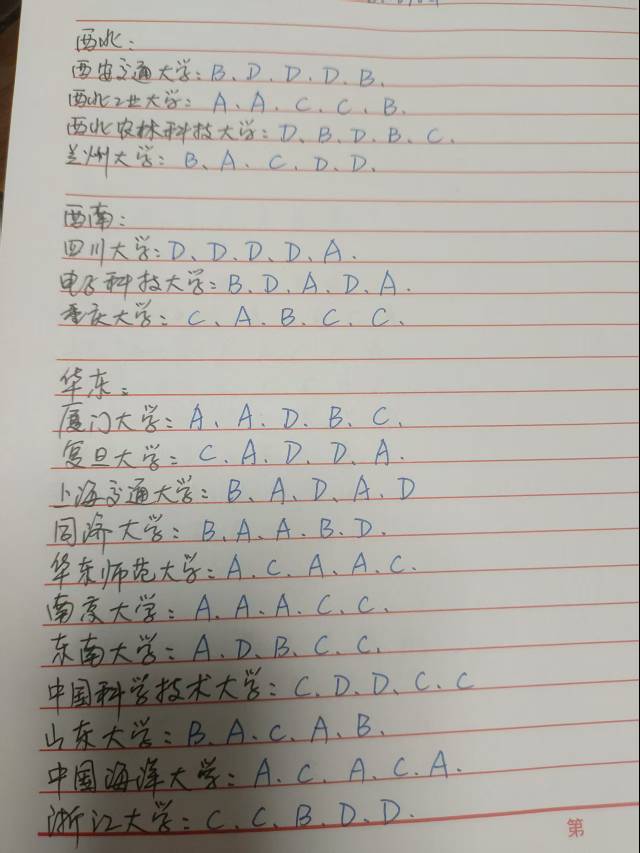 西北：
西安交通大学：B、D、D、D、B、
西北工业大学：A、A、C、C、B、
西北农林科技大学：D、B、D、B、C、
兰州大学：B、A、C、D、D、
西南：
四川大学：D、D、D、D、A、
电子科技大学：B、D、A、D、A、
重庆大学：C、A、B、C、C、
华东：
厦门大学：A、A、D、B、C、
复旦大学：C、A、D、D、A、
上海交通大学：B、A、D、A、D
同济大学：B、A、A、B、D、
华东师范大学：A、C、A、A、C、
南京大学：A、A、A、C、C、
东南大学：A、D、B、C、C、
中国科学技术大学：C、D、D、C、C
山东大学：B、A、C、A、B、
中国海洋大学：A、C、A、C、A、
浙江大学：C、C、B、D、D、
第